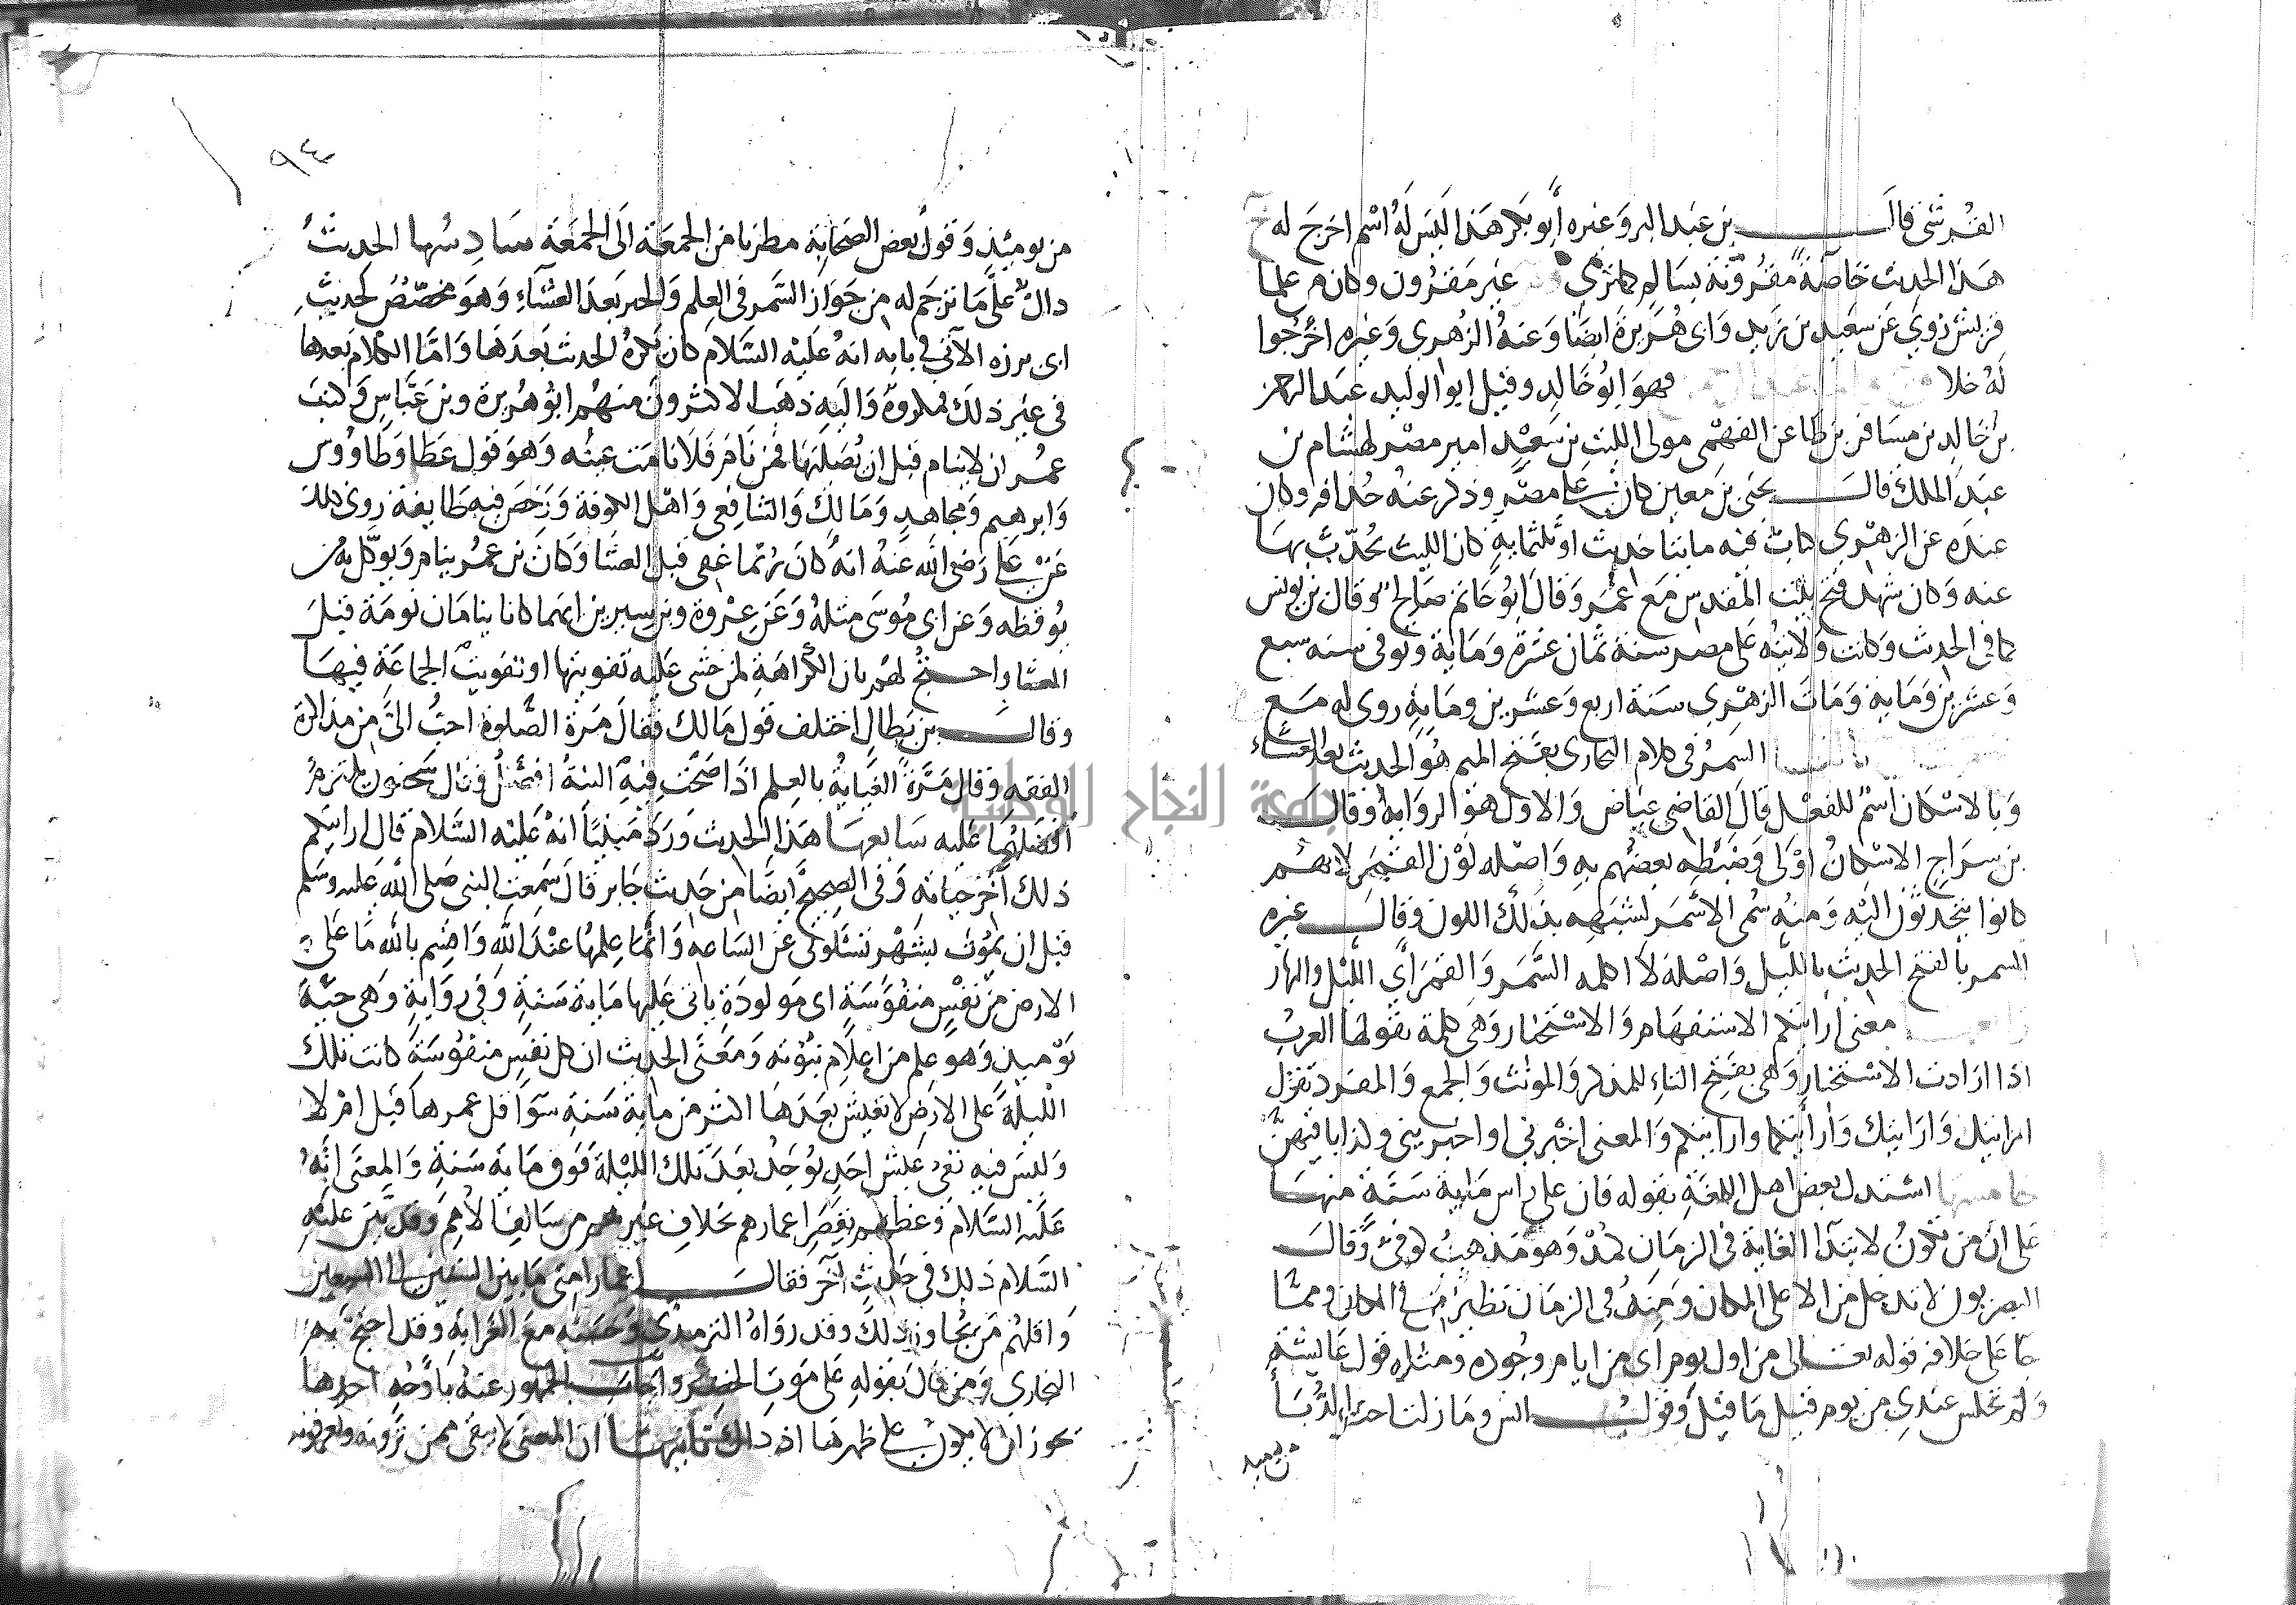 القرشي قال بن عبد البر وغيره أبو بكر هذا ليس له اسم اخرج له خ
هذا الحديث خاصة مقرونة بسالم كما ترى غير مقرون وكان من علما
قريش روي عن سعيد بن زيد وابي هريرة ايضا وعنه الزهري وغيره اخرجوا
له خلا فهو ابو خالد وقيل ابو الوليد عبد الرحمن
بن خالد بن مسافر بن طاعن الفهمي مولى الليث بن سعيد امير مصر لهشام بن
عبد الملك قال يحيى بن معين كان على مصر وذكر عنه حذافة وكان
عنده عن الزهري كتاب فيه مايتا حديث او ثلثماية كان الليث يحدث بها
عنه وكان شهد فتح بيت المقدس مع عمر وقال ابو حاتم صالح وقال بن يونس
كما في الحديث وكانت ولايته على مصر سنة ثمان عشرة وماية وتوفي سنه سبع
وعشرين وماية ومات الزهري سنة اربع وعشرين وماية روى له مع
السمر في كلام البخاري بفتح الميم هو الحديث بعد العشاء
وبالاسكان اسم للفعل قال القاضي عياض والاول هو الرواية وقال
بن سراج الاسكان اولى وضبطه بعضهم به واصله لون القمر لانهم
كانوا يتحدثون اليه ومنه سمي الاسمر لشبهه بذلك اللون وقال غيره
السمر بالفتح الحديث بالليل واصله لا اكلمه السمر والقمر اي الليل والنهار
معنى ارايتكم الاستفهام والاستخبار وهي كلمة تقولها العرب
اذا ارادت الاستخبار وهي بفتح التاء للمذكر والمونث والجمع والمفرد تقول
ارايتك وارايتك وارايتكما وارايتكم والمعنى اخبرني او اخبريني وكذا باقيهن
خامسها استدل بعض اهل اللغة بقوله فان على راس ماية سنة منها
على ان من تكون لابتدا الغاية في الزمان كمذ وهو مذهب كوفي وقال
البصريون لا تدخل من الا على المكان ومنذ في الزمان نظير من في المكان ومما
جا على خلافه قوله تعالى من اول يوم اي من ايام وجوده ومثله قول عايشة
ولم يجلس عندي من يوم قيل ما قيل وقول انس وما زلت احب الدبا
من يوميذ
٩٤
من يوميذ وقول بعض الصحابة مطرنا من الجمعة الى الجمعة سادسها الحديث
دال على ما ترجم له من جواز السمر في العلم والخير بعد العشاء وهو مخصص لحديث
ابي برزه الآتي في بابه انه عليه السلام كان يكره الحديث بعدها واما الكلام بعدها
في غير ذلك فمكروه واليه ذهب الاكثرون منهم ابو هريرة وبن عباس وكتب
عمر ان لا ينام قبل ان يصليها فمن نام فلا نامت عينه وهو قول عطا وطاووس
وابرهيم ومجاهد ومالك والشافعي واهل الكوفة ورخص فيه طايفة روي ذلك
عن علي رضي الله عنه انه كان ربما غفى قبل العشا وكان بن عمر ينام ويوكل به من
يوقظه وعن ابي موسى مثله وعن عروة وبن سيرين انهما كانا ينامان نومة قبل
العشا واحتج لهم بان الكراهة لمن خشي عليه تفويتها او تفويت الجماعة فيها
وقال بن بطال اختلف قول مالك فقال مرة الصلوة احب الي من مذاكرة
الفقه وقال مرة العناية بالعلم اذا صحت فيه النية افضل وقال سحنون يلتزم
اثقلهما عليه سابعها هذا الحديث ورد مبينا انه عليه السلام قال ارايتكم
ذلك آخر حياته وفي الصحيح ايضا من حديث جابر قال سمعت النبي صلى الله عليه وسلم
قبل ان يموت بشهر تسئلوني عن الساعه وانما علمها عند الله واقسم بالله ما على
الارض من نفس منفوسة اي مولودة ياتي عليها ماية سنة وفي رواية وهي حية
يوميذ وهو علم من اعلام نبوته ومعنى الحديث ان كل نفس منفوسة كانت تلك
الليلة على الارض لا تعيش بعدها اكثر من ماية سنة سوا قل عمرها قبل ام لا
وليس فيه نفي عيش احد يوجد بعد تلك الليلة فوق ماية سنة والمعنى انه
عليه السلام وعظهم بقصر اعمارهم بخلاف غيرهم من سالف الامم وقد بين عليه
السلام ذلك في حديث آخر فقال اعمار امتي ما بين الستين الى السبعين
واقلهم من يجاوز ذلك وقد رواه الترمذي وحسنه مع الغرابة وقد احتج به
البخاري ومن قال بقوله على موت الخضر واجاب الجمهور عنه باوجه احدها
يجوز ان لا يكون على ظهرها اذ ذاك ثانيها ان المعنى لا يبقى ممن ترونه وتعرفونه
جامعة النجاح الوطنية